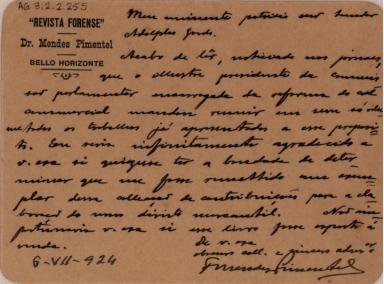 AG 3.2.2.255
"REVISTA FORENSE"
Dr. Mendes Pimentel
BELLO HORIZONTE
Meu eminente patricio snr. Senador
Adolpho Gordo.
Acabo de lêr, noticiado nos jornaes,
que o illustre presidente da commis
são parlamentar encarregada da reforma do cod.
commercial mandou reunir em um só vo
lume todos os trabalhos já apresentados a esse proposi
to. Eu seria infinitamente agradecido a
v. exa si quizesse ter a bondade de deter
minar que me fosse remettido um exem
plar dessa collecção de contribuições para a ela
boração do novo direito mercantil. Não im
portunaria v. exa si esse livro fosse exposto á
venda.
De v. exa
obrmo coll. e sincero admdor
FMendes Pimentel
6-VII-924